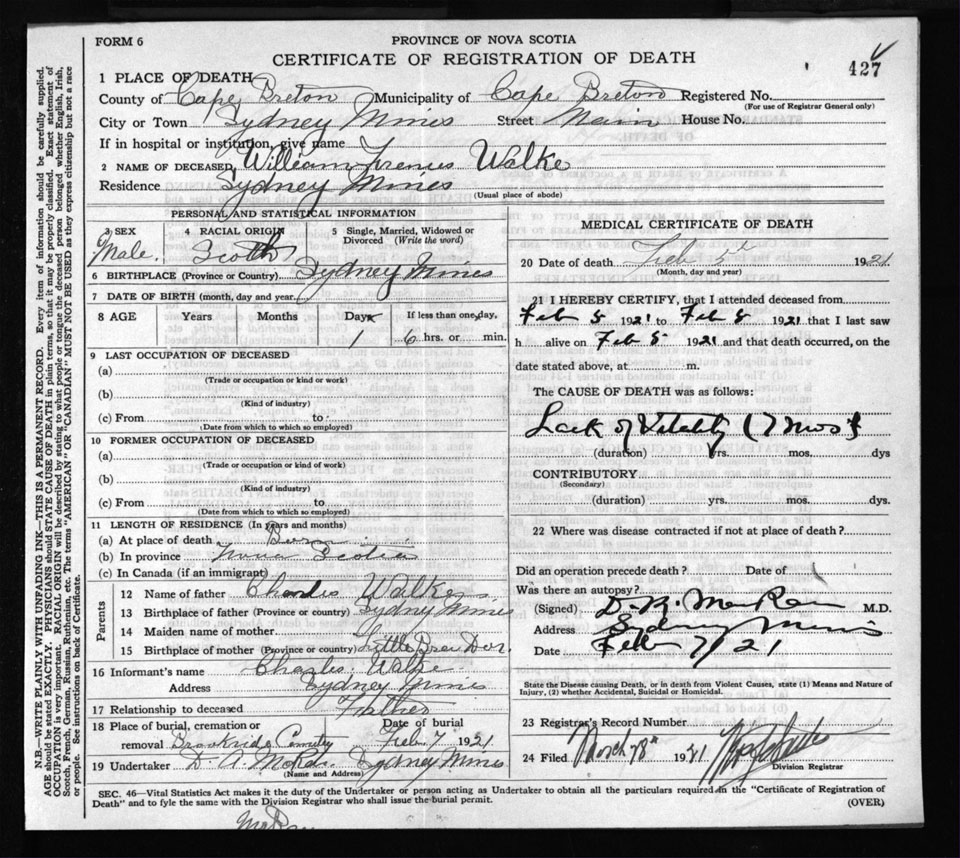 FORM 6
PROVINCE OF NOVA SCOTIA
CERTIFICATE OF REGISTRATION OF DEATH
427
1 PLACE OF DEATH
County of Cape Breton Municipality of Cape Breton Registered No.
(For use of Registrar General only)
City or Town Sydney Mines Street Main House No.
If in hospital or institution, give name
2 NAME OF DECEASED William Walke
Residence Sydney Mines
(Usual place of abode)
PERSONAL AND STATISTICAL INFORMATION
3 SEX 4 RACIAL ORIGIN 5 Single, Married, Widowed or Divorced (Write the word)
Male. Scotch
6 BIRTHPLACE (Province or Country) Sydney Mines
7 DATE OF BIRTH (month, day and year)
8 AGE Years Months Days If less than one day,
1 6 hrs. or min.
9 LAST OCCUPATION OF DECEASED
(a)
(Trade or occupation or kind of work)
(b)
(Kind of industry)
(c) From to
(Date from which to which so employed)
10 FORMER OCCUPATION OF DECEASED
(a)
(Trade or occupation or kind of work)
(b)
(Kind of industry)
(c) From to
(Date from which to which so employed)
11 LENGTH OF RESIDENCE (In years and months)
(a) At place of death
(b) In province Nova Scotia
(c) In Canada (if an immigrant)
Parents
12 Name of father Charles Walke
13 Birthplace of father (Province or country) Sydney Mines
14 Maiden name of mother
15 Birthplace of mother (Province or country) Little Bras Dor
16 Informant's name Charles Walke
Address Sydney Mines
17 Relationship to deceased Father
18 Place of burial, cremation or removal Date of burial
Brookside Cemetery Feb 7 1921
19 Undertaker D. A. Sydney Mines
(Name and Address)
MEDICAL CERTIFICATE OF DEATH
20 Date of death Feb 5 1921
(Month, day and year)
21 I HEREBY CERTIFY, that I attended deceased from
Feb 5 1921 to Feb 5 1921 that I last saw
h alive on Feb 5 1921 and that death occurred, on the
date stated above, at m.
The CAUSE OF DEATH was as follows:
Lack of Vitality (7 mos)
(duration) yrs. mos. dys
CONTRIBUTORY
(Secondary)
(duration) yrs. mos. dys.
22 Where was disease contracted if not at place of death?
Did an operation precede death? Date of
Was there an autopsy?
(Signed) M.D.
Address Sydney Mines
Date Feb 7/21
State the Disease causing Death, or in death from Violent Causes, state (1) Means and Nature of
Injury, (2) whether Accidental, Suicidal or Homicidal.
23 Registrar's Record Number
24 Filed March 1921
Division Registrar
SEC. 46—Vital Statistics Act makes it the duty of the Undertaker or person acting as Undertaker to obtain all the particulars required in the "Certificate of Registration of
Death" and to fyle the same with the Division Registrar who shall issue the burial permit.
(OVER)
N.B.—WRITE PLAINLY WITH UNFADING INK—THIS IS A PERMANENT RECORD. Every item of information should be carefully supplied.
AGE should be stated EXACTLY. PHYSICIANS should STATE CAUSE OF DEATH in plain terms, so that it may be properly classified. Exact statement of
OCCUPATION is very important. RACIAL ORIGIN will be described by stating to what people or tongue the deceased person belonged, whether English, Irish,
Scotch, French, German, Russian, Ruthenian, etc. The terms "AMERICAN" or "CANADIAN" MUST NOT BE USED as they express citizenship but not a race
or people. See instructions on back of Certificate.